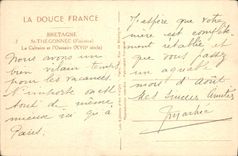 LA DOUCE FRANCE
BRETAGNE
St-THEGONNEC (Finistère)
Le Calvaire et l'Ossuaire (XVIIe siècle)
Nous avons un
bien vilain temps
pour les vacances.
N'importe c'est
tout de même
mieux ici qu'à
Paris.
J'espère que votre
mère est complète-
ment rétablie et
que vous passez
un agréable
mois d'Août
Mes sincères Amitiés